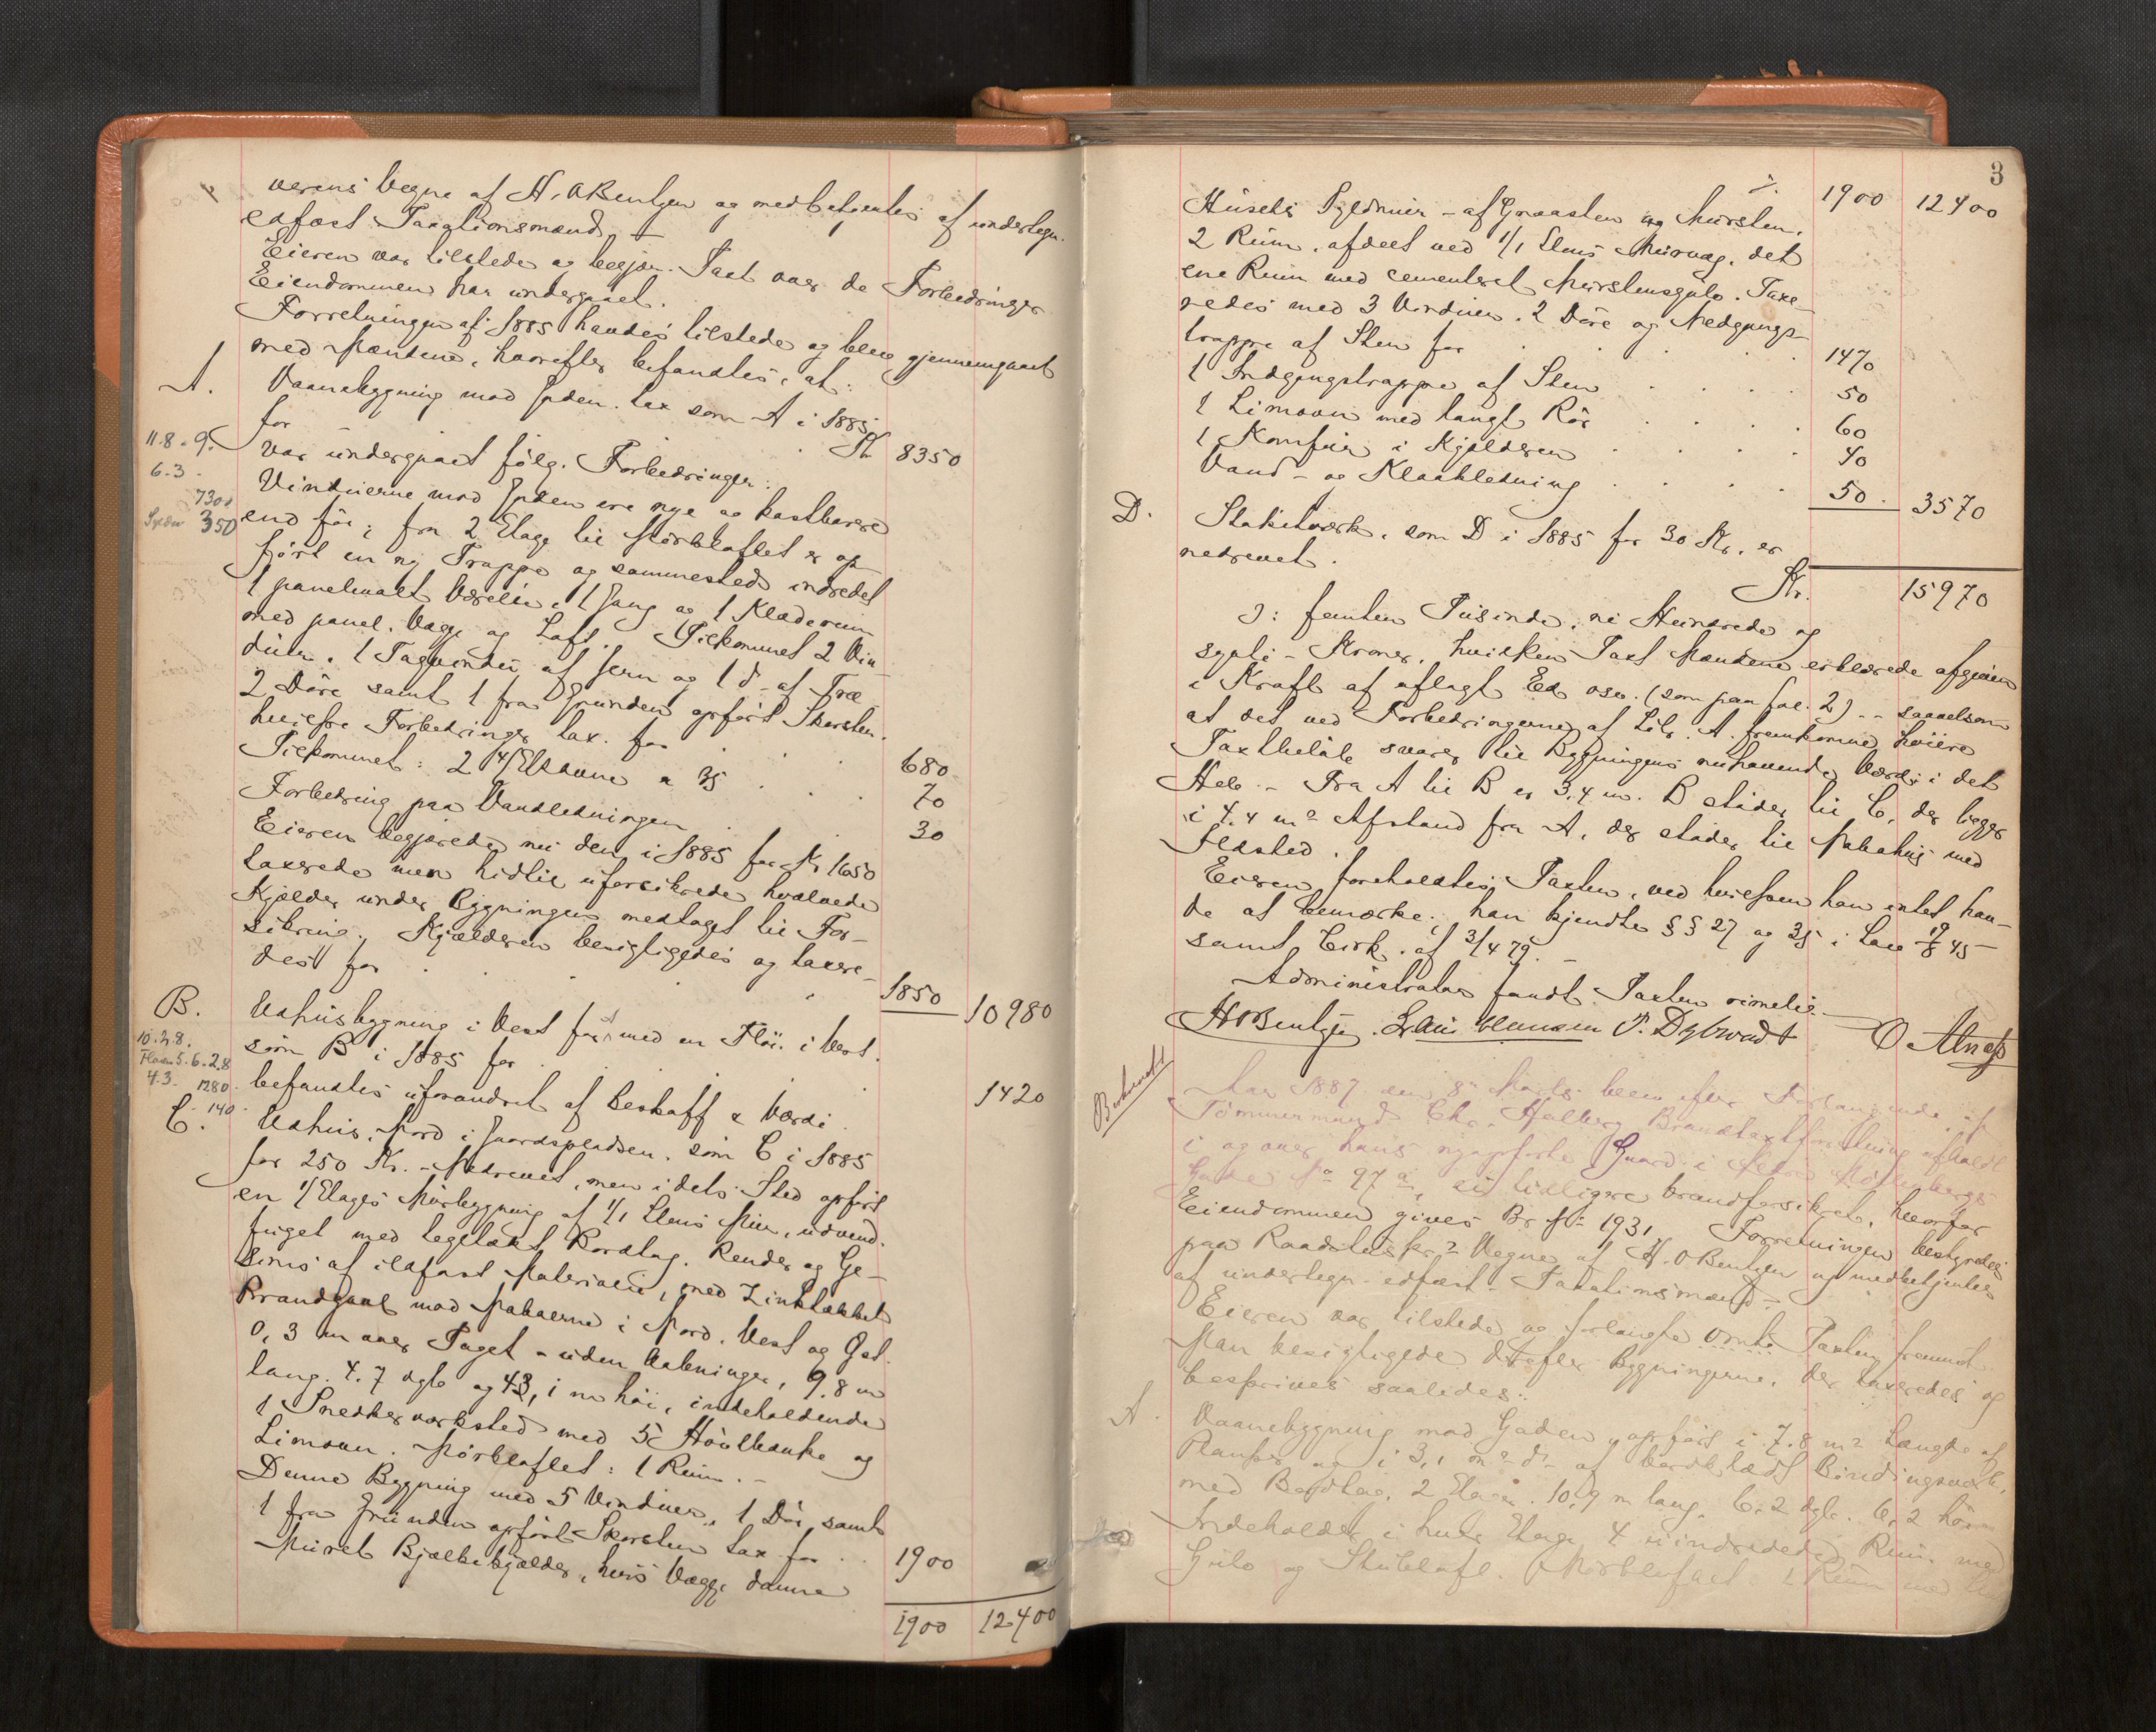 verens Vegne af H. O Bentzen og medbetjentes af undertegn.
edfæst Taxationsmænd. —
Eieren var tilstede og begjær. Taxt over de Forbedringer
Eiendommen har undergaaet.
Forretningen af 1885 havdes tilstede og blev gjennemgaaet
med Mændene, hvorefter befandtes, at:
A. Vaanebygning mod Gaden. tax som A i 1885
for . Kr 8350
11.8 - 9.
var undergaaet følg. Forbedringer:
6.3 -
Vinduerne mod Gaden ere nye og kostbarere
7300
350 end før; fra 2 Etage til Mørkloftet er op-
ført en ny Trappe og sammesteds indredet
1 panelmalt Værelse, 1 Gang og 1 Klæderum
med panel. Vægge og Loft. Tilkommet 2 Vin-
duer, 1 Tagvindu af Jern og 1 do af Træ
2 Døre samt 1 fra Grunden opført Skorsten.
hvilke Forbedringer tax. for . . . 680
Tilkommet: 2 4/Et ovne a 35 . . . 70
Forbedring paa Vandledningen . . 30
Eieren begjærede nu den i 1885 for Kr 1650
taxerede men hidtil uforsikrede hvælvede
Kjælder under Bygningen medtaget til For-
sikring. Kjælderen besigtigedes og taxere-
des for . . . 1850 10980
B. Udhusbygning i Vest først med en Fløi i Vest.
10.2.8.
som B i 1885 for . . . . 1420
5.6.2.8
4.3. 1280.
befandtes uforandret af Beskaff & Værdi.
140
C. Udhus, Nord i Gaardspladsen. som C i 1885
for 250 Kr. - Nedrevet, men i dets Sted opført
en 1/Etages Murbygning af 1/1 Stens Mur, udvend.
fuget med tegltækt Bordtag. Render og Ge-
sims af ildfast Materiale, med Zinktækket
Brandgavl mod Naboerne i Nord. Vest og Øst.
0,3 m over Taget - uden Aabninger, 9.8 m
lang. 4.7 dyb og 43,1 m høi, indeholdende
1 Snedkerværksted med 5 Høvlbænke og
Limovn. Mørkloftet: 1 Rum. -
Denne Bygning med 5 Vinduer, 1 Dør samt
1 fra Grunden opført Skorsten tax for . . 1900
Muret Bjælkekjælder, hvis Vægge danne
1900 12400
3
%. 1900 12400
Husets Syldmur - af Graasten og Mursten.
2 Rum. afdelt ved 1/1 Stens Murvæg. det
ene Rum med cementeret Murstensgulv. Taxe-
redes med 3 Vinduer. 2 Døre og Nedgangs-
trappe af Sten for . . . . . . 1470
1 Indgangstrappe af Sten . . . . 50
1 Limovn med langt Rør . . . . 60
1 Komfur i Kjælderen . . . . 40
Vand- og Kloakledning . . . . 50. 3570
D. Stakitværk, som D i 1885 for 30 Kr. er
nedrevet.
Kr. 15970
ɔ: femten Tusinde, ni Hundrede og
sypti - Kroner, hvilken Taxt Mændene erklærede afgiven
i Kraft af aflagt Ed osv. (som paa fol. 2) - - saavelsom
at det ved Forbedringerne af Litr. A. fremkomne høiere
Taxtbeløb svarer til Bygningens nuhavende Værdi i det
Hele. - Fra A til B er 3,4 m. B støder til C, der ligger
i 4.4 m? Afstand fra A, der støder til Nabohus med
Ildsted.
Eieren foreholdtes Taxten, ved hvilken han intet hav-
de at bemærke; han kjendte §§ 27 og 35 i Lov 19/8 45
samt Cirk. af 3/4 79. -
Administrator fandt Taxten rimelig.
H O Bentzen. P. Dybwadt O. Alnæs
Aar 1887 den 8de Marts blev efter Forlangende af
Tømmermand Chr. Hallberg Brandtaxtforretning afholdt
i og over hans nyopførte Gaard i Nedre Møllenbergs
Gade No 97 a, ei tidligere brandforsikret, hvorfor
Eiendommen gives Br No 1931 Forretningen bestyredes
paa Raadstuskr? Vegne af H. O Bentzen og medbetjentes
af undertegn. edfæst. Taxationsmænd -:
Eieren var tilstede og forlangte Taxten fremmet.
Man besigtigede derefter Bygningerne, der taxeredes og
beskrives saaledes:
A. Vaanebygning mod Gaden, opført i 7.8 m? Længde af
Planker og i 3,1 m? do af bordklædt Bindingsværk,
med Bordtag, 2 Etager. 10,9 m lang. 6.2 dyb. 6.2 høi
Indeholder i hver Etage 4 uindredede Rum med
Gulv og Stubloft. Mørkloftet: 1 Rum med